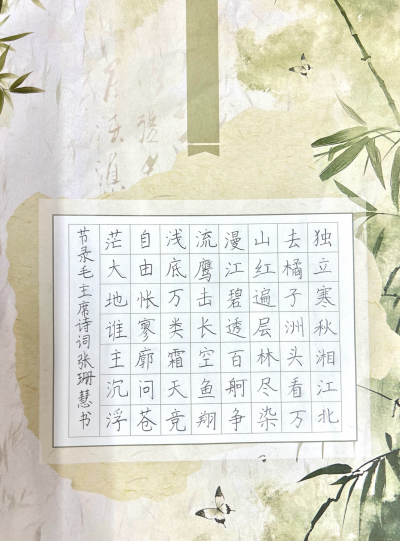 独立寒秋湘江北
去橘子洲头看万
山红遍层林尽染
漫江碧透百舸争
流鹰击长空鱼翔
浅底万类霜天竞
自由怅寥廓问苍
茫大地谁主沉浮
节录毛主席诗词张珊慧书